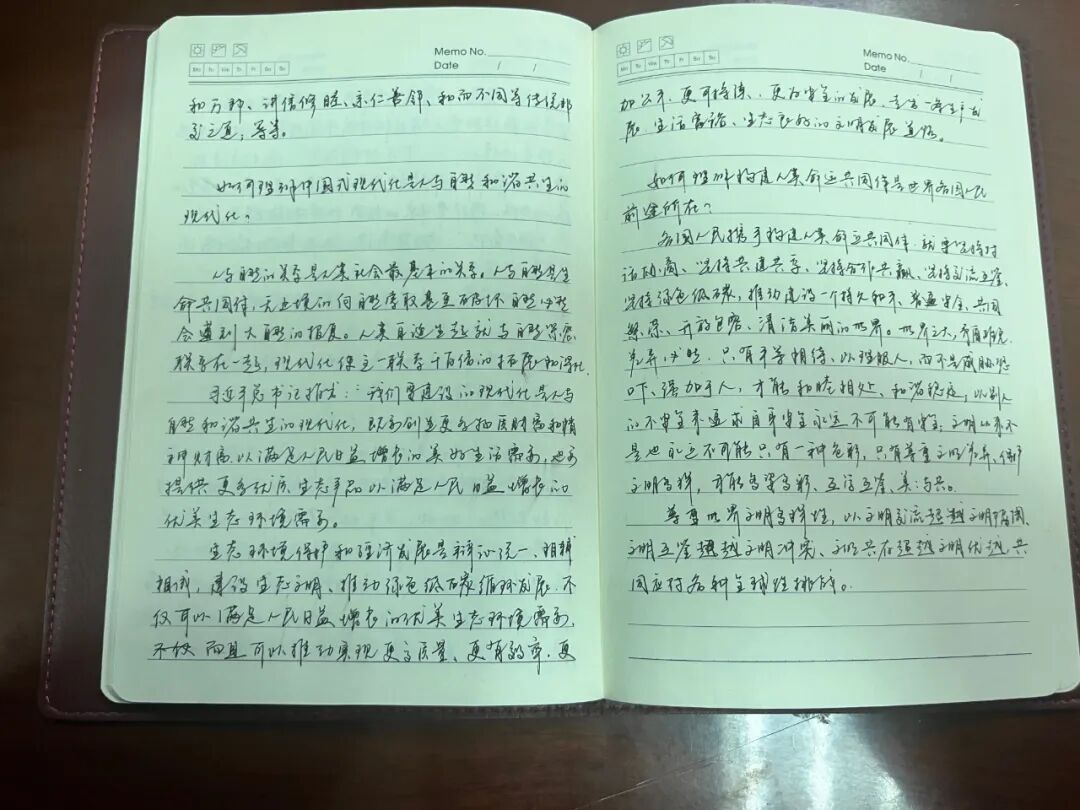 Memo No.
Mo Tu We Th Fr Sa Su
Date / /
和万邦、讲信修睦、亲仁善邻、和而不同等传统邦
交之道，等等。
如何理解中国式现代化是人与自然和谐共生的
现代化？
人与自然的关系是人类社会最基本的关系。人与自然是生
命共同体，无止境的向自然索取甚至破坏自然必然
会遭到大自然的报复。人类自诞生起就与自然紧密
联系在一起，现代化使这一联系千百倍的拓展和深化。
习近平总书记指出：“我们要建设的现代化是人与
自然和谐共生的现代化，既要创造更多物质财富和精
神财富以满足人民日益增长的美好生活需要，也要
提供更多优质生态产品以满足人民日益增长的
优美生态环境需要。
生态环境保护和经济发展是辩证统一、相辅
相成，建设生态文明、推动绿色低碳循环发展，不
仅可以满足人民日益增长的优美生态环境需要，
不仅而且可以推动实现更高质量、更有效率、更
Memo No.
Mo Tu We Th Fr Sa Su
Date / /
加公平、更可持续、更为安全的发展，走出一条生产发
展、生活富裕、生态良好的文明发展道路。
如何理解构建人类命运共同体是世界各国人民
前途所在？
各国人民携手构建人类命运共同体，就要坚持对
话协商、坚持共建共享、坚持合作共赢、坚持交流互鉴、
坚持绿色低碳，推动建设一个持久和平、普遍安全、共同
繁荣、开放包容、清洁美丽的世界。世界之大，矛盾难免
差异必然，只有平等相待、以理服人，而不是威胁恐
吓、强加于人，才能和睦相处、和谐稳定，以别人
的不安全来追求自身安全永远不可能有安全；文明从来不
是也永远不可能只有一种色彩，只有尊重文明差异，保护
文明多样，才能多梁多彩、互学互鉴、美美与共。
尊重世界文明多样性，以文明交流超越文明隔阂、
文明互鉴超越文明冲突、文明共存超越文明优越，共
同应对各种全球性挑战。